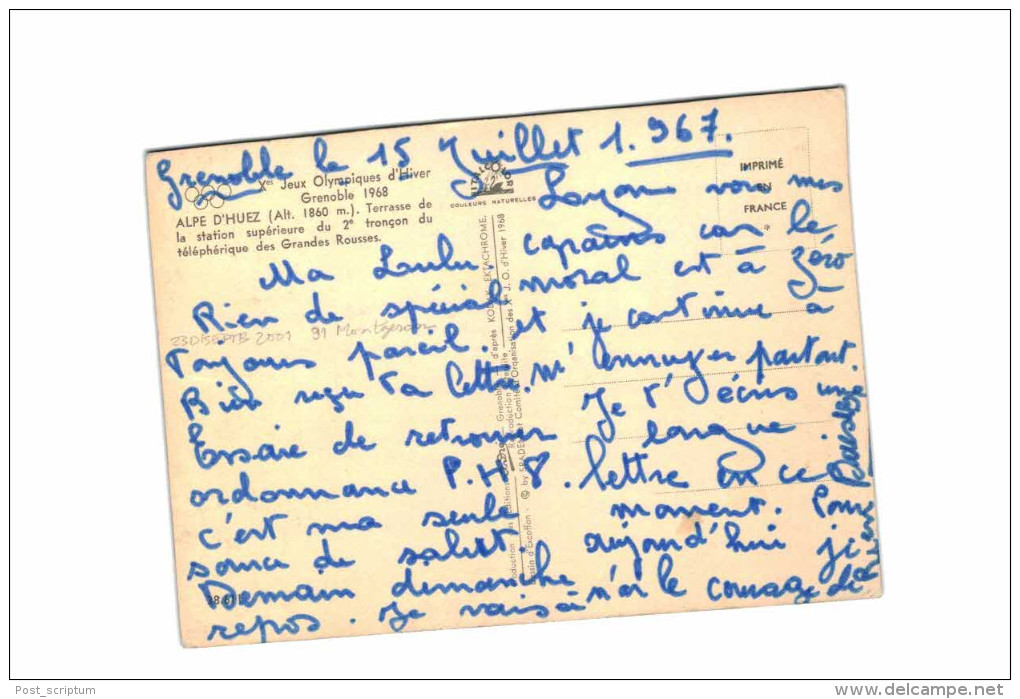 Grenoble le 15 Juillet 1.967.
Xes Jeux Olympiques d'Hiver
Grenoble 1968
ALPE D'HUEZ (Alt. 1860 m.). Terrasse de
la station supérieure du 2e tronçon du
téléphérique des Grandes Rousses.
ITALCOLOR
COULEURS NATURELLES
IMPRIMÉ
EN
FRANCE
Ma Lulu.
Rien de spécial
Toujours pareil.
Bien reçu ta lettre.
Essaie de retrouver
ordonnance P.H8.
c'est ma seule
source de salut.
Demain dimanche
repos. Je vais à
Lyon voir mes
copains car le
moral est à zéro
et je continue à
m'ennuyer partout.
Je t'écris une
longue
lettre en ce
moment. Pour
aujourd'hui je
n'ai le courage de
rien
Baisers
2001 91 Montgeron
d'après KODAK EKTACHROME.
Reproduction interdite
© by SPADEM et Comité d'Organisation des Xes J.O. d'Hiver 1968
38.611
Post_scriptum
delcampe.net